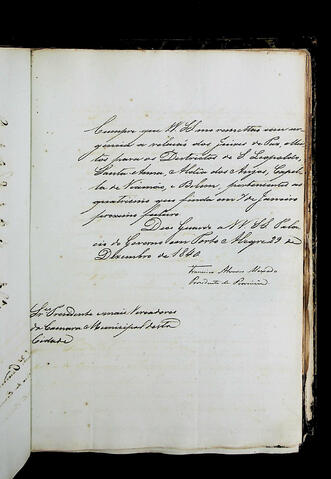 Cumpre que V. S.as me remettão com ur-
gencia a relação dos Juizes de Paz elei-
tos para os Destrictos de S. Leopoldo,
Santa Anna, Aldeia dos Anjos, Capel-
la de Viamão, e Belem, pertencentes ao
quatriennio que finda em 7 de Janeiro
proximo futuro.
Deos Guarde a V. S.as Pala-
cio do Governo em Porto Alegre 29 de
Dezembro de 1840.
Francisco
Presidente da Provincia
Sr.es Presidente e mais Vereadores
da Camara Municipal desta
Cidade